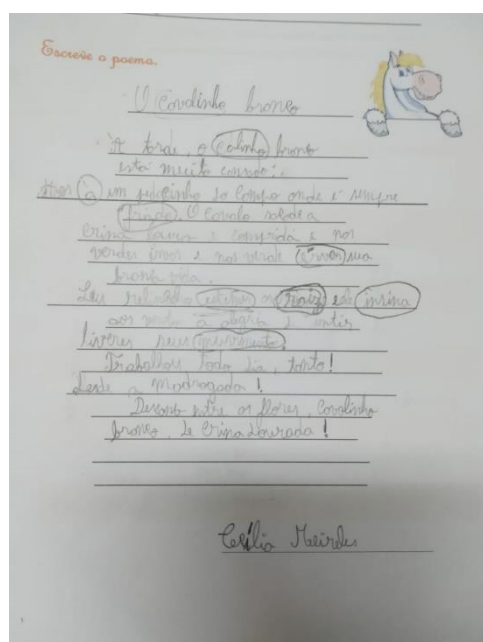 Escreve o poema.
O Cavalinho branco
À tarde, o calinho branco
está muito cansado:
Mas à um pedacinho do campo onde é sempre
friado. O cavalo sacode a
crina loura e comprida e nos
verdes ervas sua
branca vida.
Seu relincho as raiz e ele insina
aos ventos a alegria e sentir
livres seus movimento
Trabalhou todo dia, tanto!
desde a madrogada!
Descansa entre as flores, cavalinho
branco, de crina dourada!
Cecília Meireles